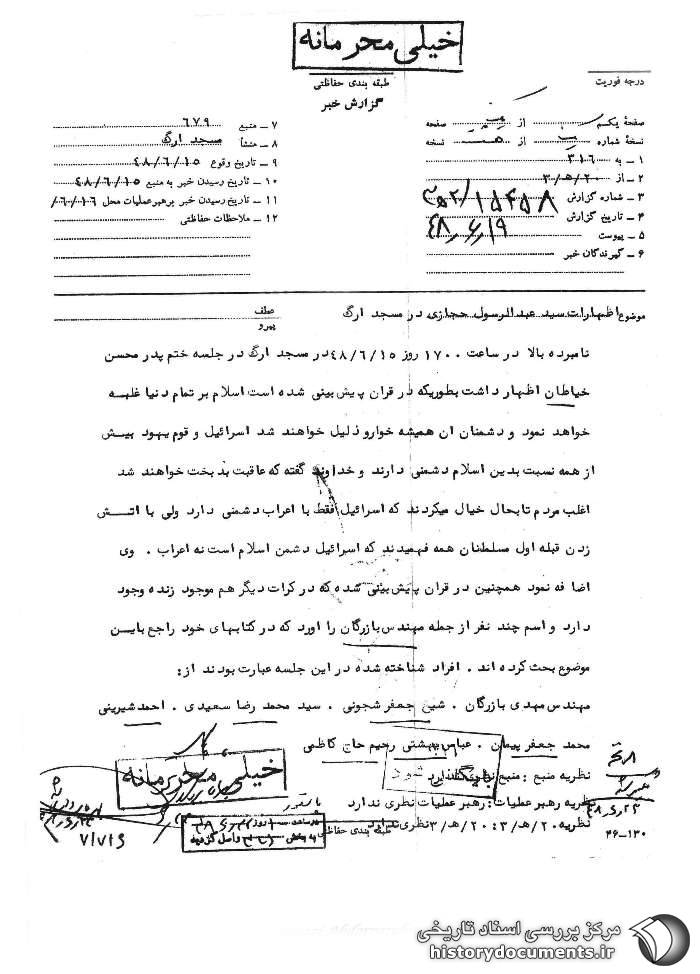 خیلی محرمانه
درجه فوریت
طبقه بندی حفاظتی
گزارش خبر
صفحهٔ یکم از صفحه
نسخهٔ شماره از نسخه
۱ ـ به ۳۱۶
۲ ـ از ۲۰/ه/۳
۳ ـ شماره گزارش
۴ ـ تاریخ گزارش ۴۸/۶/۱۹
۵ ـ پیوست
۶ ـ گیرندگان خبر
۷ ـ منبع ۶۷۹
۸ ـ منشأ مسجد ارگ
۹ ـ تاریخ وقوع ۴۸/۶/۱۵
۱۰ ـ تاریخ رسیدن خبر به منبع ۴۸/۶/۱۵
۱۱ ـ تاریخ رسیدن خبر برهبر عملیات محل ۶/۱۶/
۱۲ ـ ملاحظات حفاظتی
موضوع اظهارات سید عبدالرسول حجازی در مسجد ارگ
عطف
پیرو
نامبرده بالا در ساعت ۱۷۰۰ روز ۴۸/۶/۱۵ در مسجد ارگ در جلسه ختم پدر محسن
خیاطان اظهار داشت بطوریکه در قران پیش بینی شده است اسلام بر تمام دنیا غلبه
خواهد نمود و دشمنان ان همیشه خوار و ذلیل خواهند شد اسرائیل و قوم یهود بیش
از همه نسبت بدین اسلام دشمنی دارند و خداوند گفته که عاقبت بد بخت خواهند شد
اغلب مردم تا بحال خیال میکردند که اسرائیل فقط با اعراب دشمنی دارد ولی با اتش
زدن قبله اول مسلطنان همه فهمیدند که اسرائیل دشمن اسلام است نه اعراب . وی
اضافه نمود همچنین در قران پیش بینی شده که در کرات دیگر هم موجود زنده وجود
دارد و اسم چند نفر از جمله مهندس بازرگان را اورد که در کتابهای خود راجع باین
موضوع بحث کرده اند . افراد شناخته شده در این جلسه عبارت بودند از:
مهندس مهدی بازرگان . شیخ جعفر شجونی . سید محمد رضا سعیدی . احمد شیرینی
محمد جعفر پیمان . عباس بهشتی رحیم حاج کاظمی
نظریه منبع : منبع نظری ندارد
نظریه رهبر عملیات : رهبر عملیات نظری ندارد
نظریه ۲۰/ه/۳ : ۲۰/ه/۳ نظری ندارد
خیلی محرمانه
بایگانی شود
طبقه بندی حفاظتی
واصل گردید
۷/۷/۲۹
۴۶-۱۳۰
مرکز بررسی اسناد تاریخی
historydocuments.ir